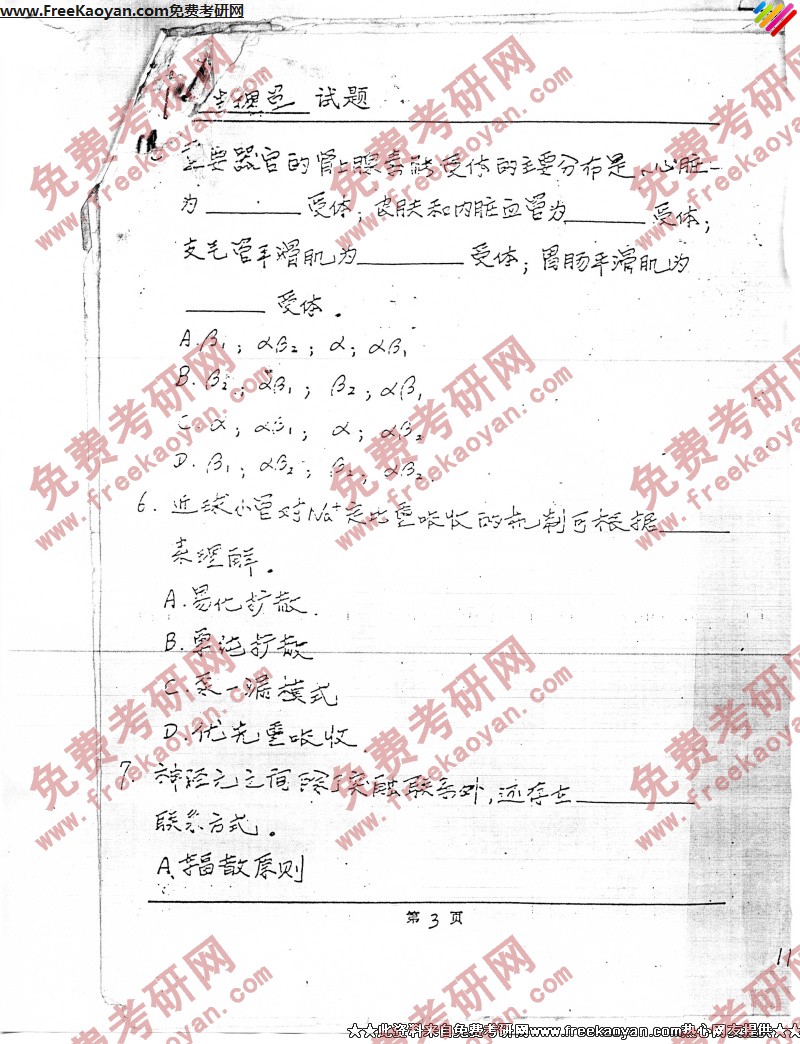 www.FreeKaoyan.com免费考研网
生理学 试题
主要器官的肾上腺素能受体的主要分布是，心脏
为________受体；皮肤和内脏血管为________受体；
支气管平滑肌为________受体；胃肠平滑肌为
________受体．
A. β₁；αβ₂；α；αβ₁
B. β₂；αβ₁；β₂；αβ₁
C. α；αβ₁；α；αβ₂
D. β₁；αβ₂；β₂；αβ₂．
6. 近球小管对Na⁺定比重吸收的机制可根据______
来理解．
A. 易化扩散．
B. 单纯扩散
C. 泵—漏模式
D. 优先重吸收．
7. 神经元之间除了突触联系外，还存在________
联系方式．
A. 辐散原则
第 3 页
11
★★此资料来自免费考研网www.freekaoyan.com热心网友提供★★
免费考研网
www.freekaoyan.com